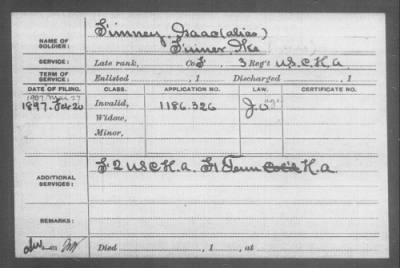 Finney, Isaac (alias)
NAME OF SOLDIER:
Finner, Ike
SERVICE: Late rank, Co F. 3 Reg't U.S.C.H.A
TERM OF SERVICE: Enlisted , 1 Discharged , 1
DATE OF FILING. CLASS. APPLICATION NO. LAW. CERTIFICATE NO.
1897. Feb 20 Invalid, 1186.326
Widow,
Minor,
ADDITIONAL SERVICES: F 2 U.S.C.H.A. F 1 Tenn H.A.
REMARKS:
Died , 1 , at